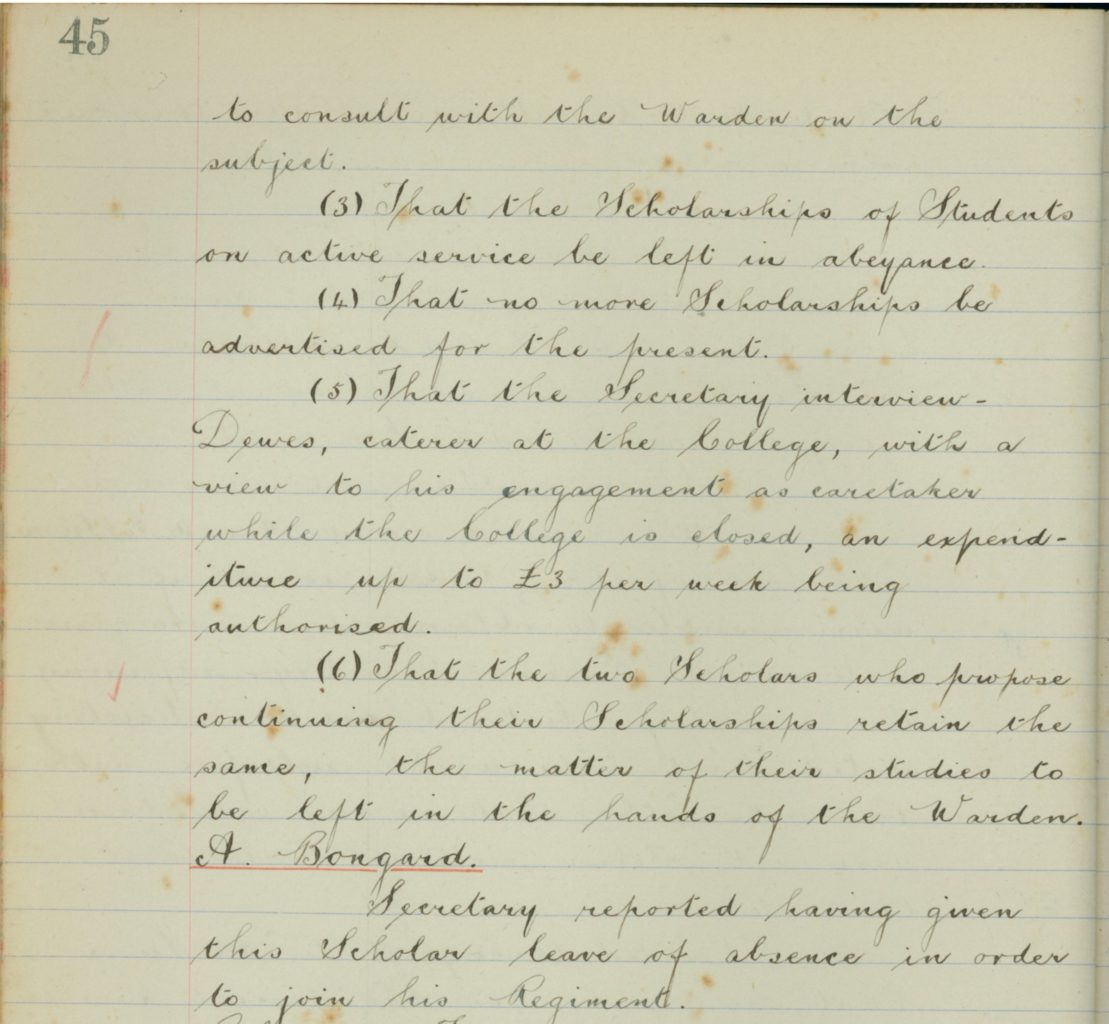 45
to consult with the Warden on the
subject.
(3) That the Scholarships of Students
on active service be left in abeyance.
(4) That no more Scholarships be
advertised for the present.
(5) That the Secretary interview -
Dewes, caterer at the College, with a
view to his engagement as caretaker
while the College is closed, an expend-
iture up to £3 per week being
authorised.
(6) That the two Scholars who propose
continuing their Scholarships retain the
same, the matter of their studies to
be left in the hands of the Warden.
A. Bongard.
Secretary reported having given
this Scholar leave of absence in order
to join his Regiment.